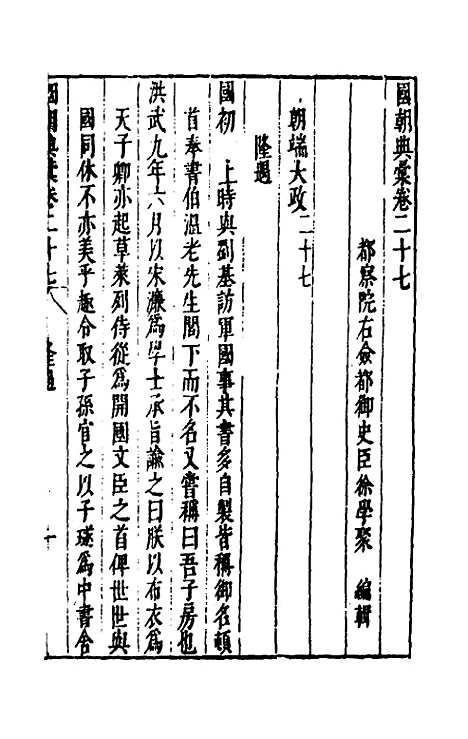 國朝典彙卷二十七
都察院右僉都御史臣徐學聚 編輯
朝端大政二十七
隆遇
國初 上時與劉基訪軍國事其書多自製皆稱御名頓
首奉書伯溫老先生閣下而不名又嘗稱曰吾子房也
洪武九年六月以宋濂爲學士承旨諭之曰朕以布衣爲
天子卿亦起草萊列侍從爲開國文臣之首俾世世與
國同休不亦美乎趣令取子孫官之以子璲爲中書舍
國朝典彙卷二十七 隆遇 一